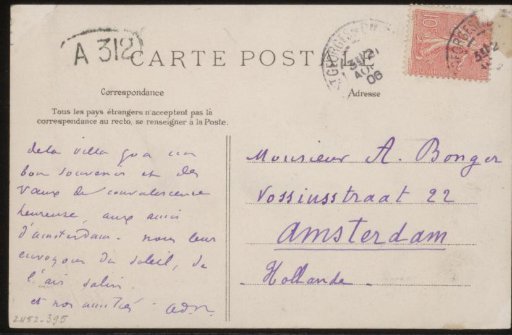 A 312
CARTE POSTALE
Correspondance
Adresse
Tous les pays étrangers n'acceptent pas la
correspondance au recto, se renseigner à la Poste.
de la villa
bon souvenir et des
vœux de convalescence
heureuse, aux amis
d'amsterdam. nous leur
envoyons du soleil, de
l'air salin.
et nos amitiés.
Monsieur A. Bonger
Vossiusstraat 22
Amsterdam
Hollande
2452-395